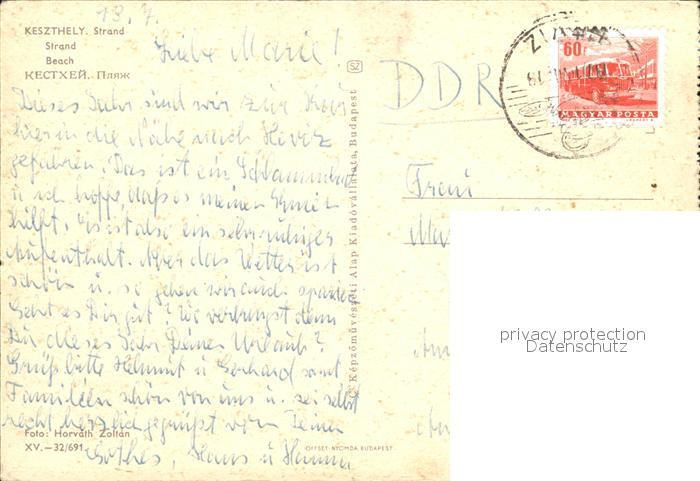 13. 7.
KESZTHELY. Strand
Strand
Beach
КЕСТХЕЙ. Пляж
Liebe Marie!
Dieses Jahr sind wir zur Kur
hier in die Nähe nach Heviz
gefahren. Das ist ein Schlammbad
u. ich hoffe, dass es meinen
hilft. Es ist also ein sehr ruhiger
Aufenthalt. Aber das Wetter ist
schön u. so gehen wir auch
Geht es Dir gut? Wo verbringst denn
Du dieses Jahr Deinen Urlaub?
Grüß bitte Helmut u Gerhard samt
Familien schön von uns u. sei selbst
recht herzlich gegrüßt von Deinen
Hans u Hanna
Foto: Horváth Zoltán
XV.—32/691
OFFSET-NYOMDA, BUDAPEST
Képzőművészeti Alap Kiadóvállalata, Budapest
SZ
DDR
60f
MAGYAR POSTA
Frau
privacy protection
Datenschutz